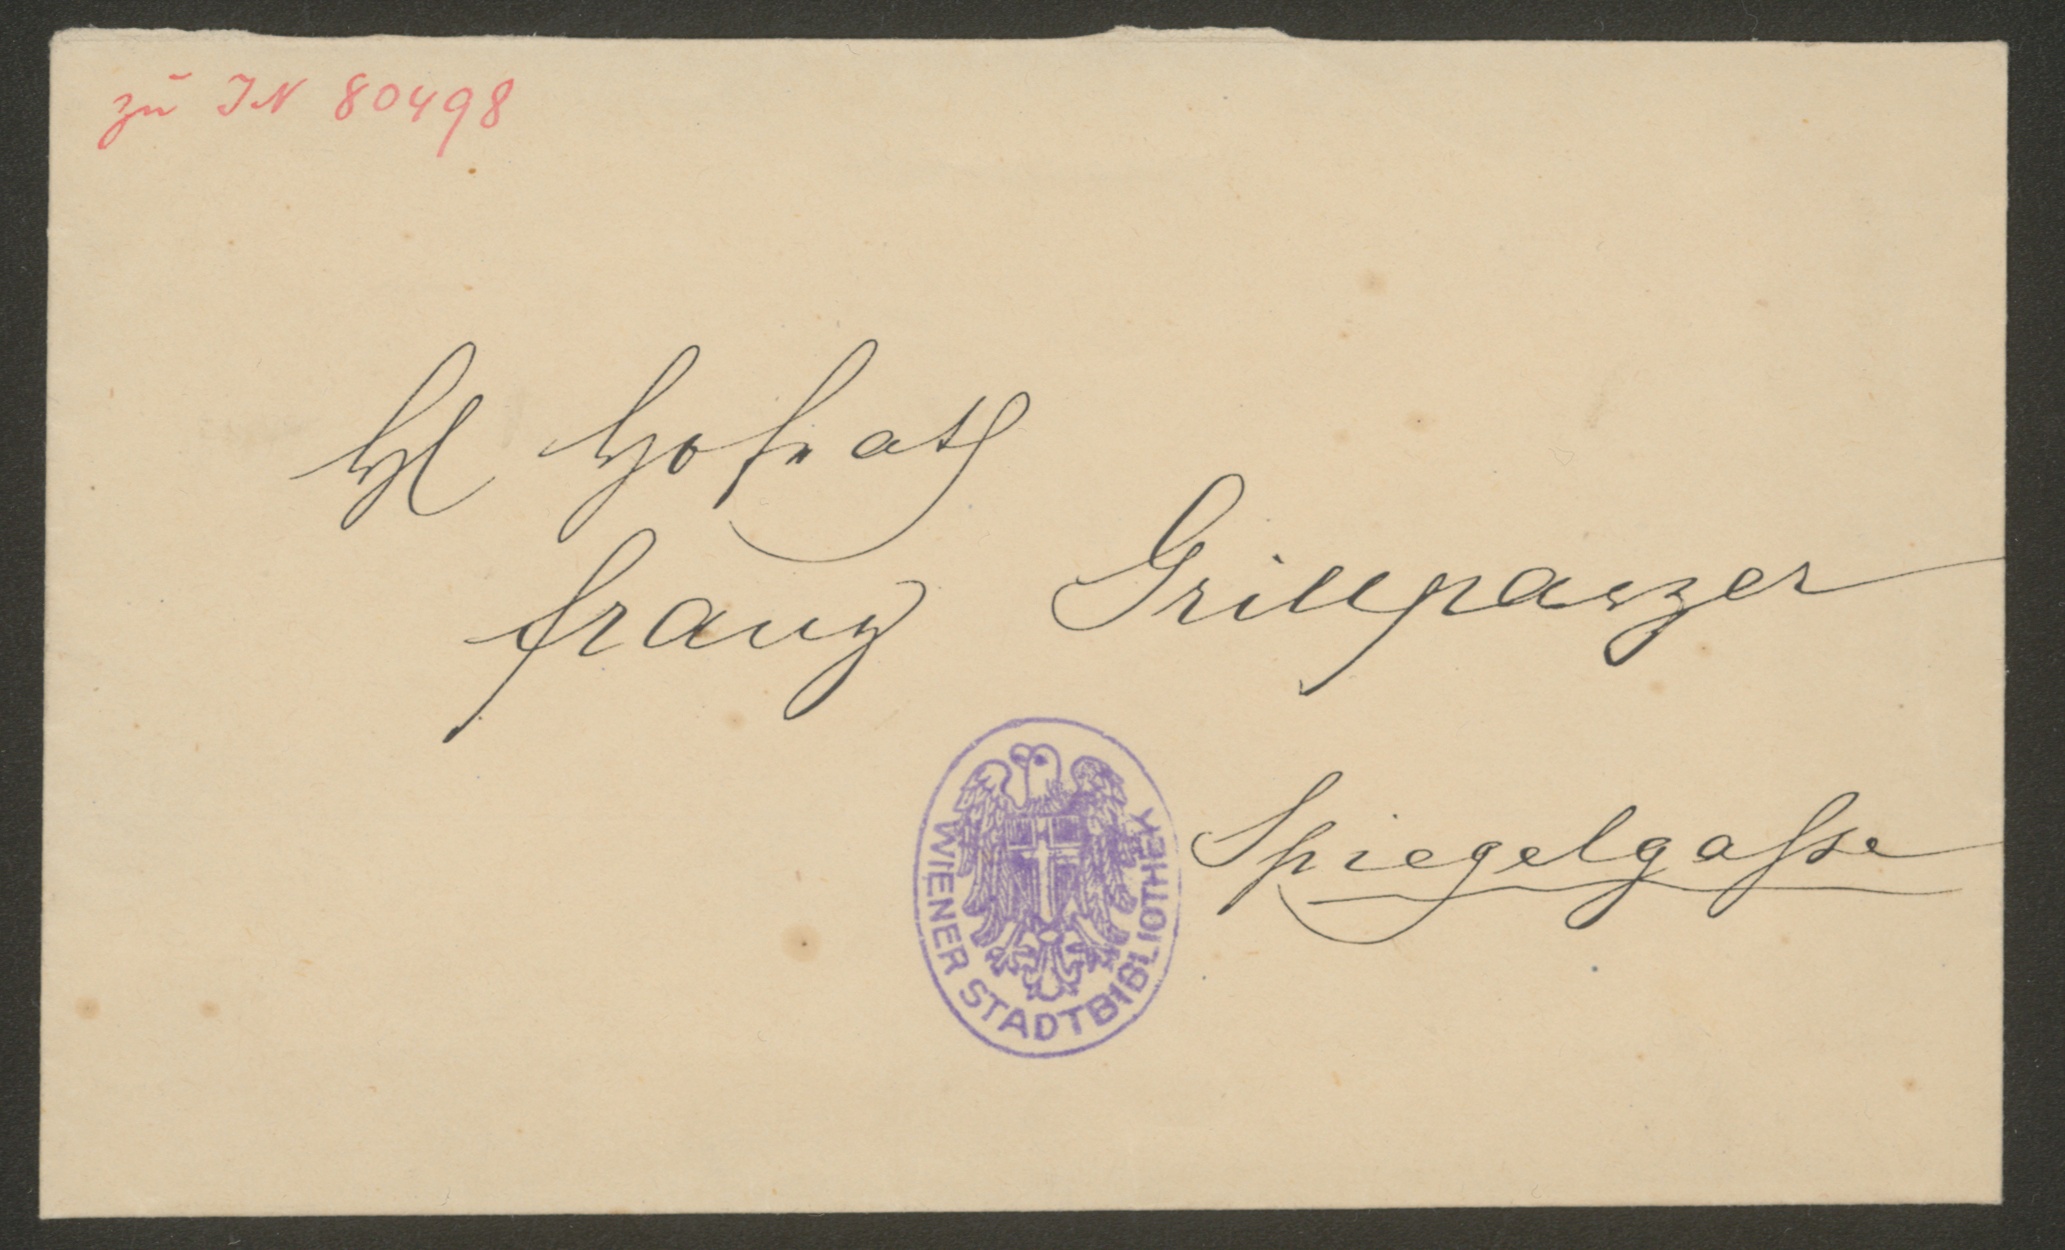 zu IN 80498
H Hofrath
Franz Grillparzer
WIENER STADTBIBLIOTHEK
Spiegelgasse